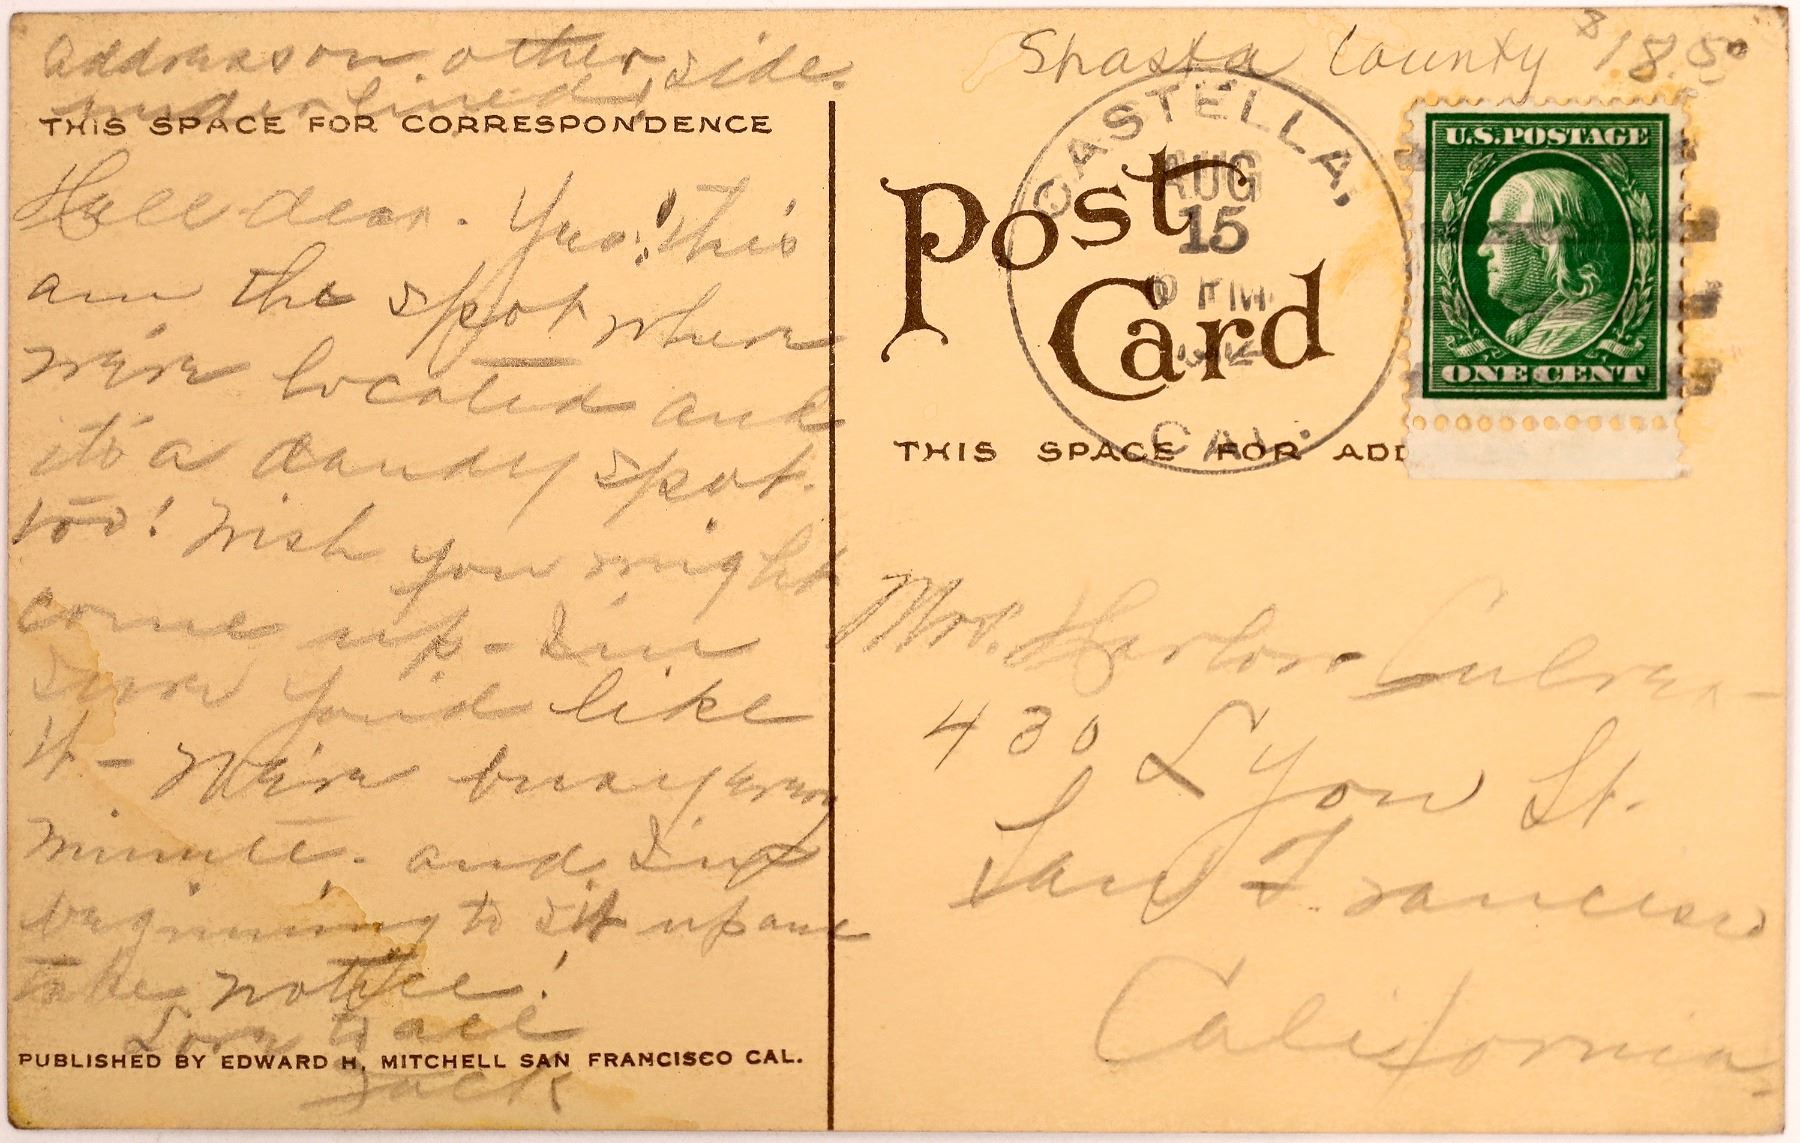 Address on other side.
underlined,
THIS SPACE FOR CORRESPONDENCE
dear. Yes! this
am the spot where
we're located and
it's a dandy spot.
too! Wish you might
come up - I'm
sure you'd like
it - We're busy every
minute. and I'm
beginning to sit up and
take notice!
Love to all
PUBLISHED BY EDWARD H. MITCHELL SAN FRANCISCO CAL.
Jack
Shasta County $18.50
CASTELLA,
AUG
15
PM
CAL.
Post
Card
U.S. POSTAGE
ONE CENT
THIS SPACE FOR ADD
Mrs. Harlow Culver
430 Lyon St.
San Francisco
California.